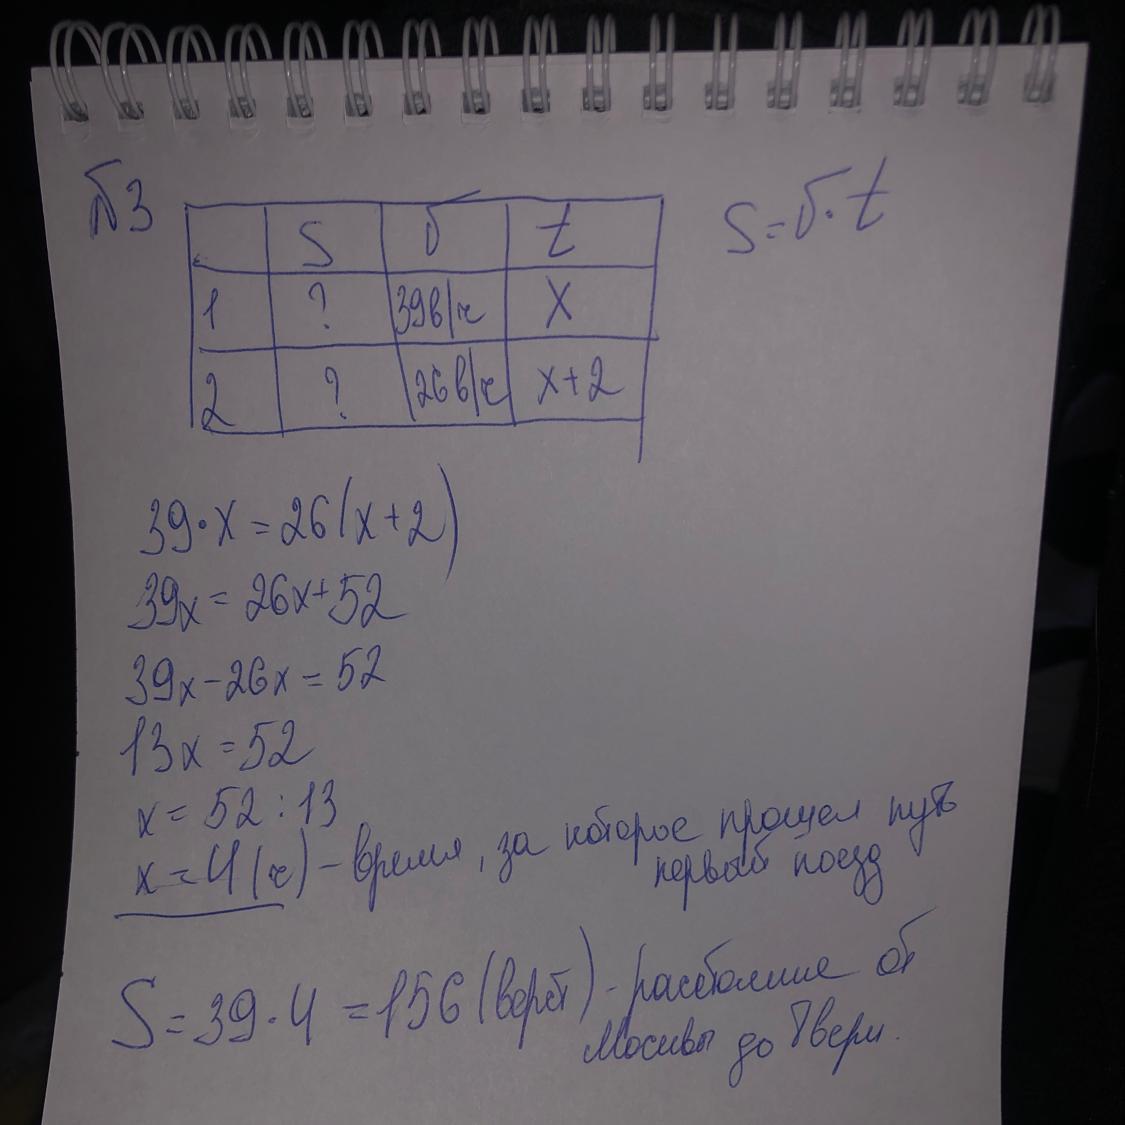 №3
S υ t
S=υ·t
1 ? 39в/ч x
2 ? 26в/ч x+2
39·x=26(x+2)
39x=26x+52
39x-26x=52
13x=52
x=52:13
x=4(ч)-время, за которое прошел путь
первый поезд
S=39·4=156(верст)-расстояние от
Москвы до Твери.